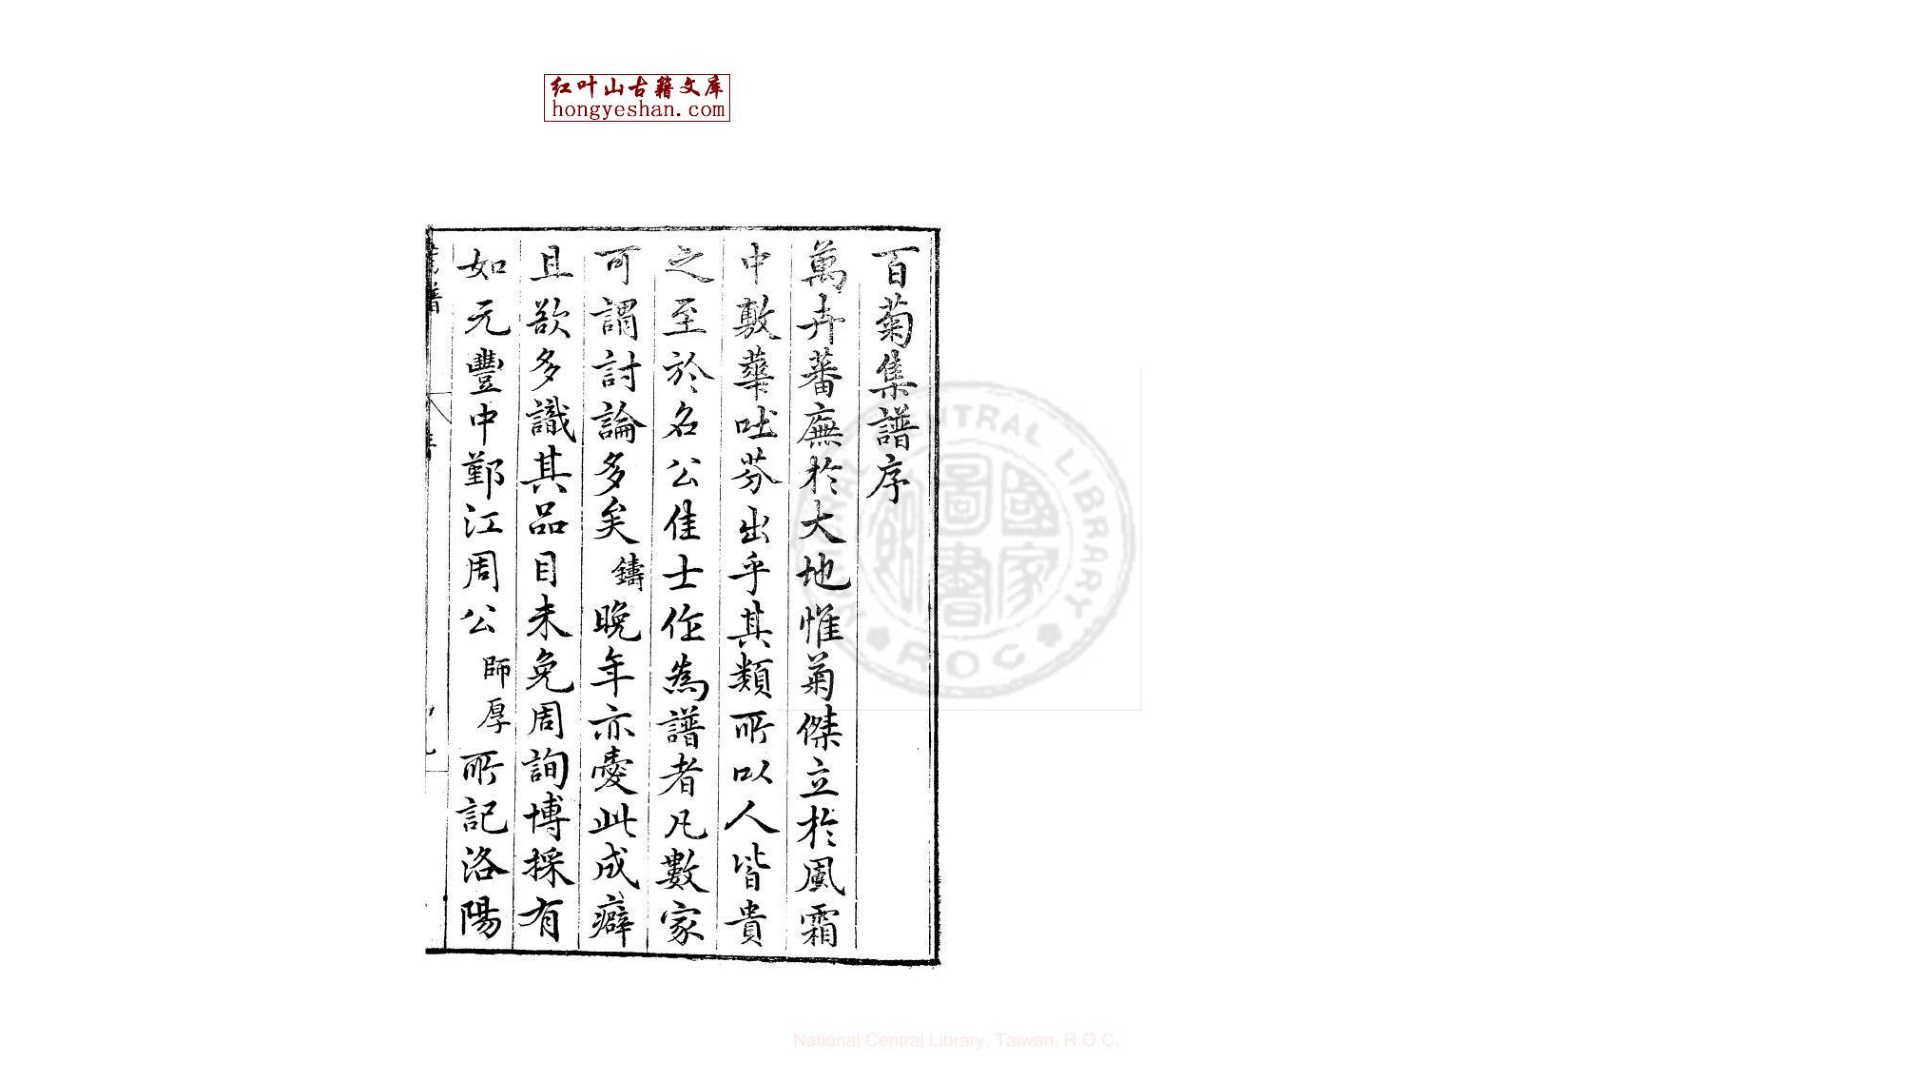 红叶山古籍文库
hongyeshan.com
百菊集譜序
萬卉蕃廡於大地惟菊傑立於風霜
中敷華吐芬出乎其類所以人皆貴
之至於名公佳士作為譜者凡數家
可謂討論多矣鑄晚年亦愛此成癖
且欲多識其品目未免周詢博採有
如元豐中鄞江周公師厚所記洛陽
國家圖書館
NATIONAL CENTRAL LIBRARY
ROC
National Central Library, Taiwan, R.O.C.